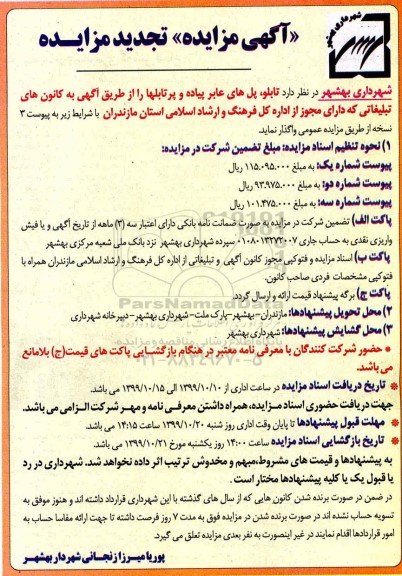 شهرداری بهشهر
«آگهی مزایده» تجدید مزایـــده
شهرداری بهشهر در نظر دارد تابلو، پل های عابر پیاده و پرتابلها را از طریق آگهی به کانون های
تبلیغاتی که دارای مجوز از اداره کل فرهنگ و ارشاد اسلامی استان مازندران با شرایط زیر به پیوست ۳
نسخه از طریق مزایده عمومی واگذار نماید.
۱) نحوه تنظیم اسناد مزایده: مبلغ تضمین شرکت در مزایده:
پیوست شماره یک: به مبلغ ۱۱۵.۰۹۵.۰۰۰ ریال
پیوست شماره دو: به مبلغ ۹۳.۹۷۵.۰۰۰ ریال
پیوست شماره سه: به مبلغ ۱۰۱.۴۷۵.۰۰۰ ریال
پاکت الف) تضمین شرکت در مزایده به صورت ضمانت نامه بانکی دارای اعتبار سه (۳) ماهه از تاریخ آگهی و یا فیش
واریزی نقدی به حساب جاری سپرده شهرداری بهشهر نزد بانک ملی شعبه مرکزی بهشهر
پاکت ب) اسناد مزایده و فتوکپی مجوز کانون آگهی و تبلیغاتی از اداره کل فرهنگ و ارشاد اسلامی مازندران همراه با
فتوکپی مشخصات فردی صاحب کانون.
پاکت ج) برگه پیشنهاد قیمت ارائه و ارسال گردد.
۲) محل تحویل پیشنهادها: مازندران-بهشهر-پارک ملت-شهرداری بهشهر-دبیرخانه شهرداری
۳) محل گشایش پیشنهادها: شهرداری بهشهر
* حضور شرکت کنندگان با معرفی نامه معتبر در هنگام بازگشـایی پاکت های قیمت(ج) بلامانع
می باشد.
* تاریخ دریافت اسناد مزایده در ساعت اداری از ۱۳۹۹/۱۰/۱۰ الی ۱۳۹۹/۱۰/۱۵ می باشد.
جهت دریافت حضوری اسناد مـزایده، همراه داشتن معرفـی نامه و مهـر شرکت الـزامی می باشد.
* مهلت قبول پیشنهادها تا پایان وقت اداری روز شنبه ۱۳۹۹/۱۰/۲۰ ساعت ۱۴:۱۵ می باشد.
* تاریخ بازگشایی اسناد مزایده ساعت ۱۴:۰۰ روز یکشنبه مورخ ۱۳۹۹/۱۰/۲۱ می باشد.
به پیشنهادها و قیمت های مشروط،مبهم و مخدوش ترتیب اثر داده نخواهد شد. شهرداری در رد
یا قبول یک یا کلیه پیشنهادها مختار است.
در ضمن در صورت برنده شدن کانون هایی که از سال های گذشته با این شهرداری قرارداد داشته اند و هنوز موفق به
تسویه حساب نشده اند در صورت برنده شدن در مزایده فوق به مدت ۷ روز فرصت داشته تا جهت ارائه مفاسا حساب به
امور قراردادها اقدام نمایند در غیر اینصورت به نفر بعدی مزایده تعلق می گیرد.
پوریا میـرزا زنجـانی شهردار بهشهـر
ParsNamadData